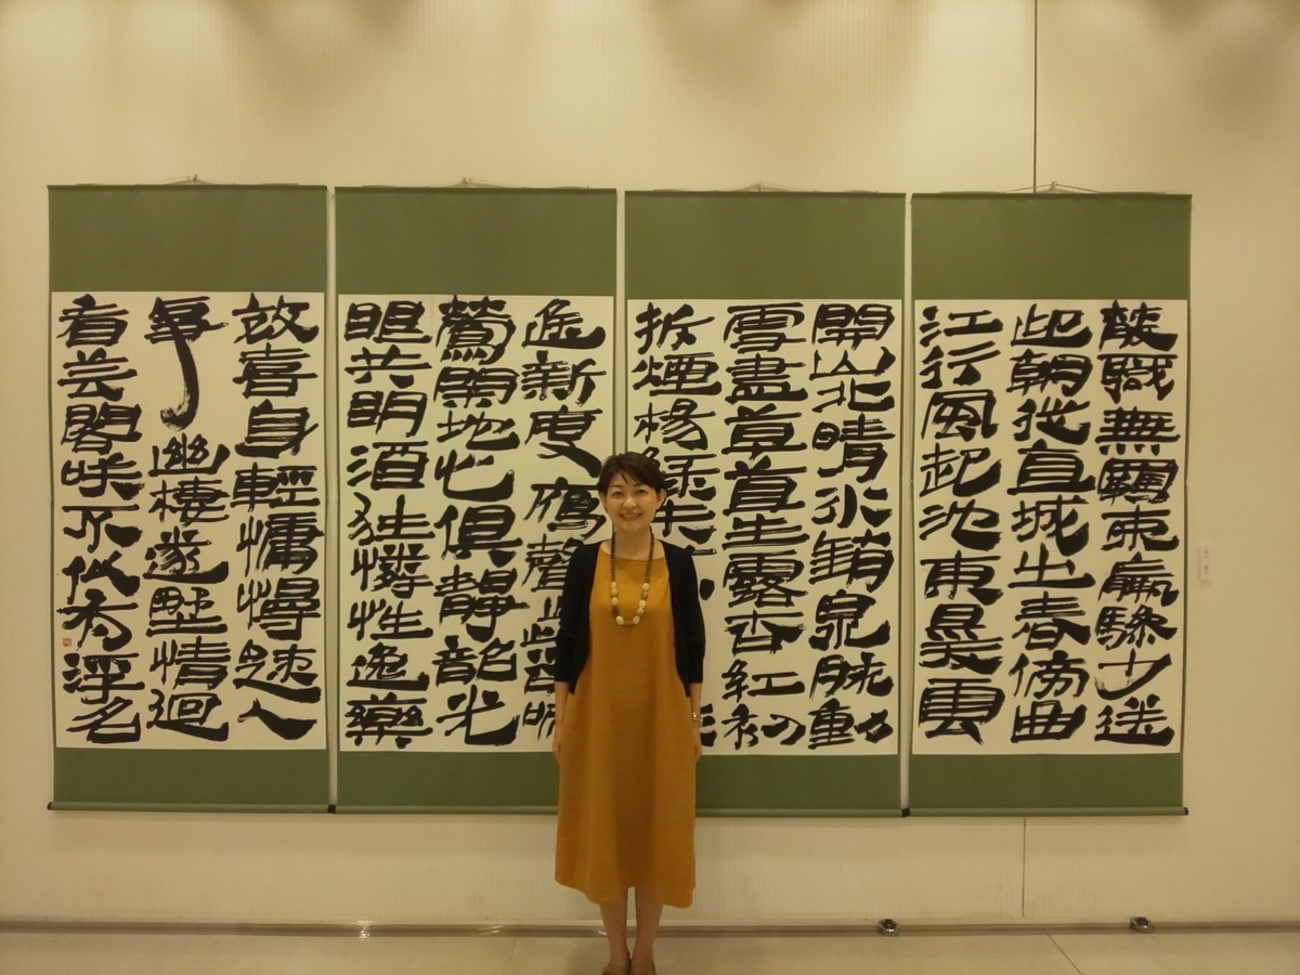 散職無羈束羸驂少送
迎朝從直城出春傍曲
江行風起池東暖雲
開山北晴氷銷泉脉動
雪盡草芽生露杏紅初
拆煙楊緑未
遅新度鴈聲
鶯閑地心俱靜韶光
眼共明酒狂憐性逸藥
效喜身輕慵慢疎人
事幽棲遂野情迴
看芸閣咲不似有浮名